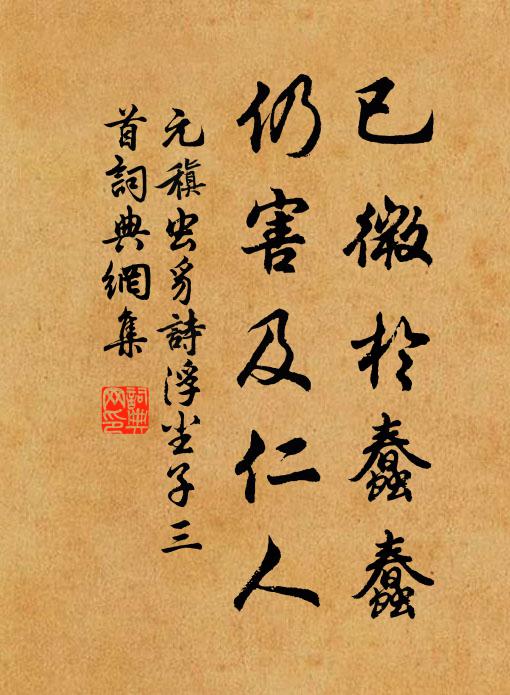 已微於蠢蠢
仍害及仁人
元稹虫豸詩浮塵子三
首詞典網集
詞典网印